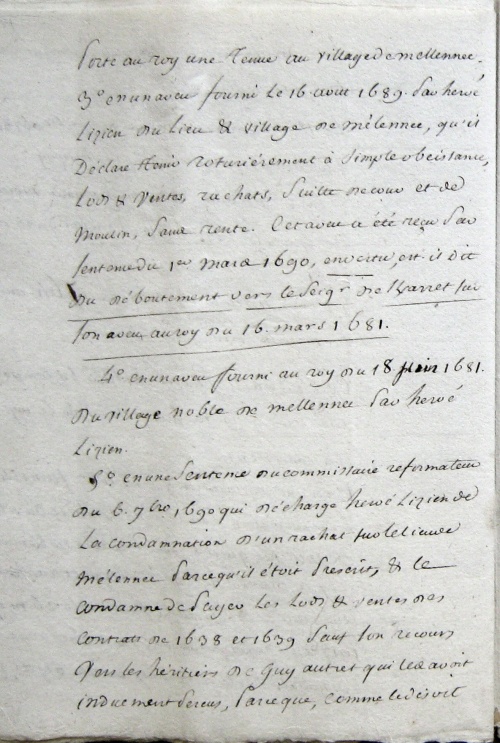 porte au roy une tenue au village de mellennec.
3.° en un aveu fourni le 16. aout 1689. par hervé
Lizien du lieu & village de mélennec, qu'il
déclare tenir roturiérement à simple obeissance,
Lods & ventes, rachats, suitte de cour et de
moulin, sans rente. Cet aveu a été reçu par
sentence du 1er mars 1690, en vertu, est-il dit
du déboutement vers le seigr. de Karret sur
son aveu au roy du 16. mars 1681.
4.° en un aveu fourni au roy du 18 juin 1681.
du village noble de mellennec par hervé
Lizien.
5.° en une sentence du commissaire reformateur
du 6. 7bre, 1690 qui décharge hervé Lizien de
La condamnation d'un rachat sur le lieu de
mélennec parcequ'il étoit prescrit, & le
condamne de payer les Lods & ventes des
contrats de 1638 et 1639 sauf son recours
vers les héritiers de Guy autret qui les avoit
induement perçus, parceque, comme le disoit